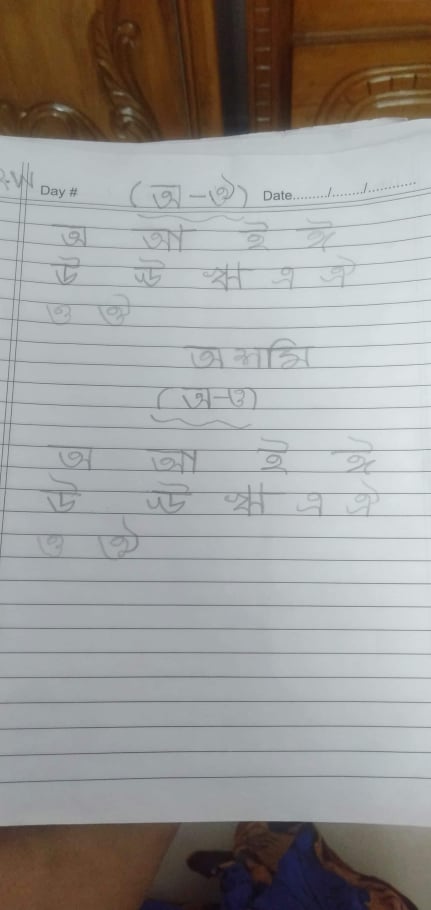 R.W
Day # (অ-ঔ) Date........./........./............
অ আ ই ঈ
উ ঊ ঋ এ ঐ
ও ঔ
(অ-ও)
অ আ ই ঈ
উ ঊ ঋ এ ঐ
ও ঔ